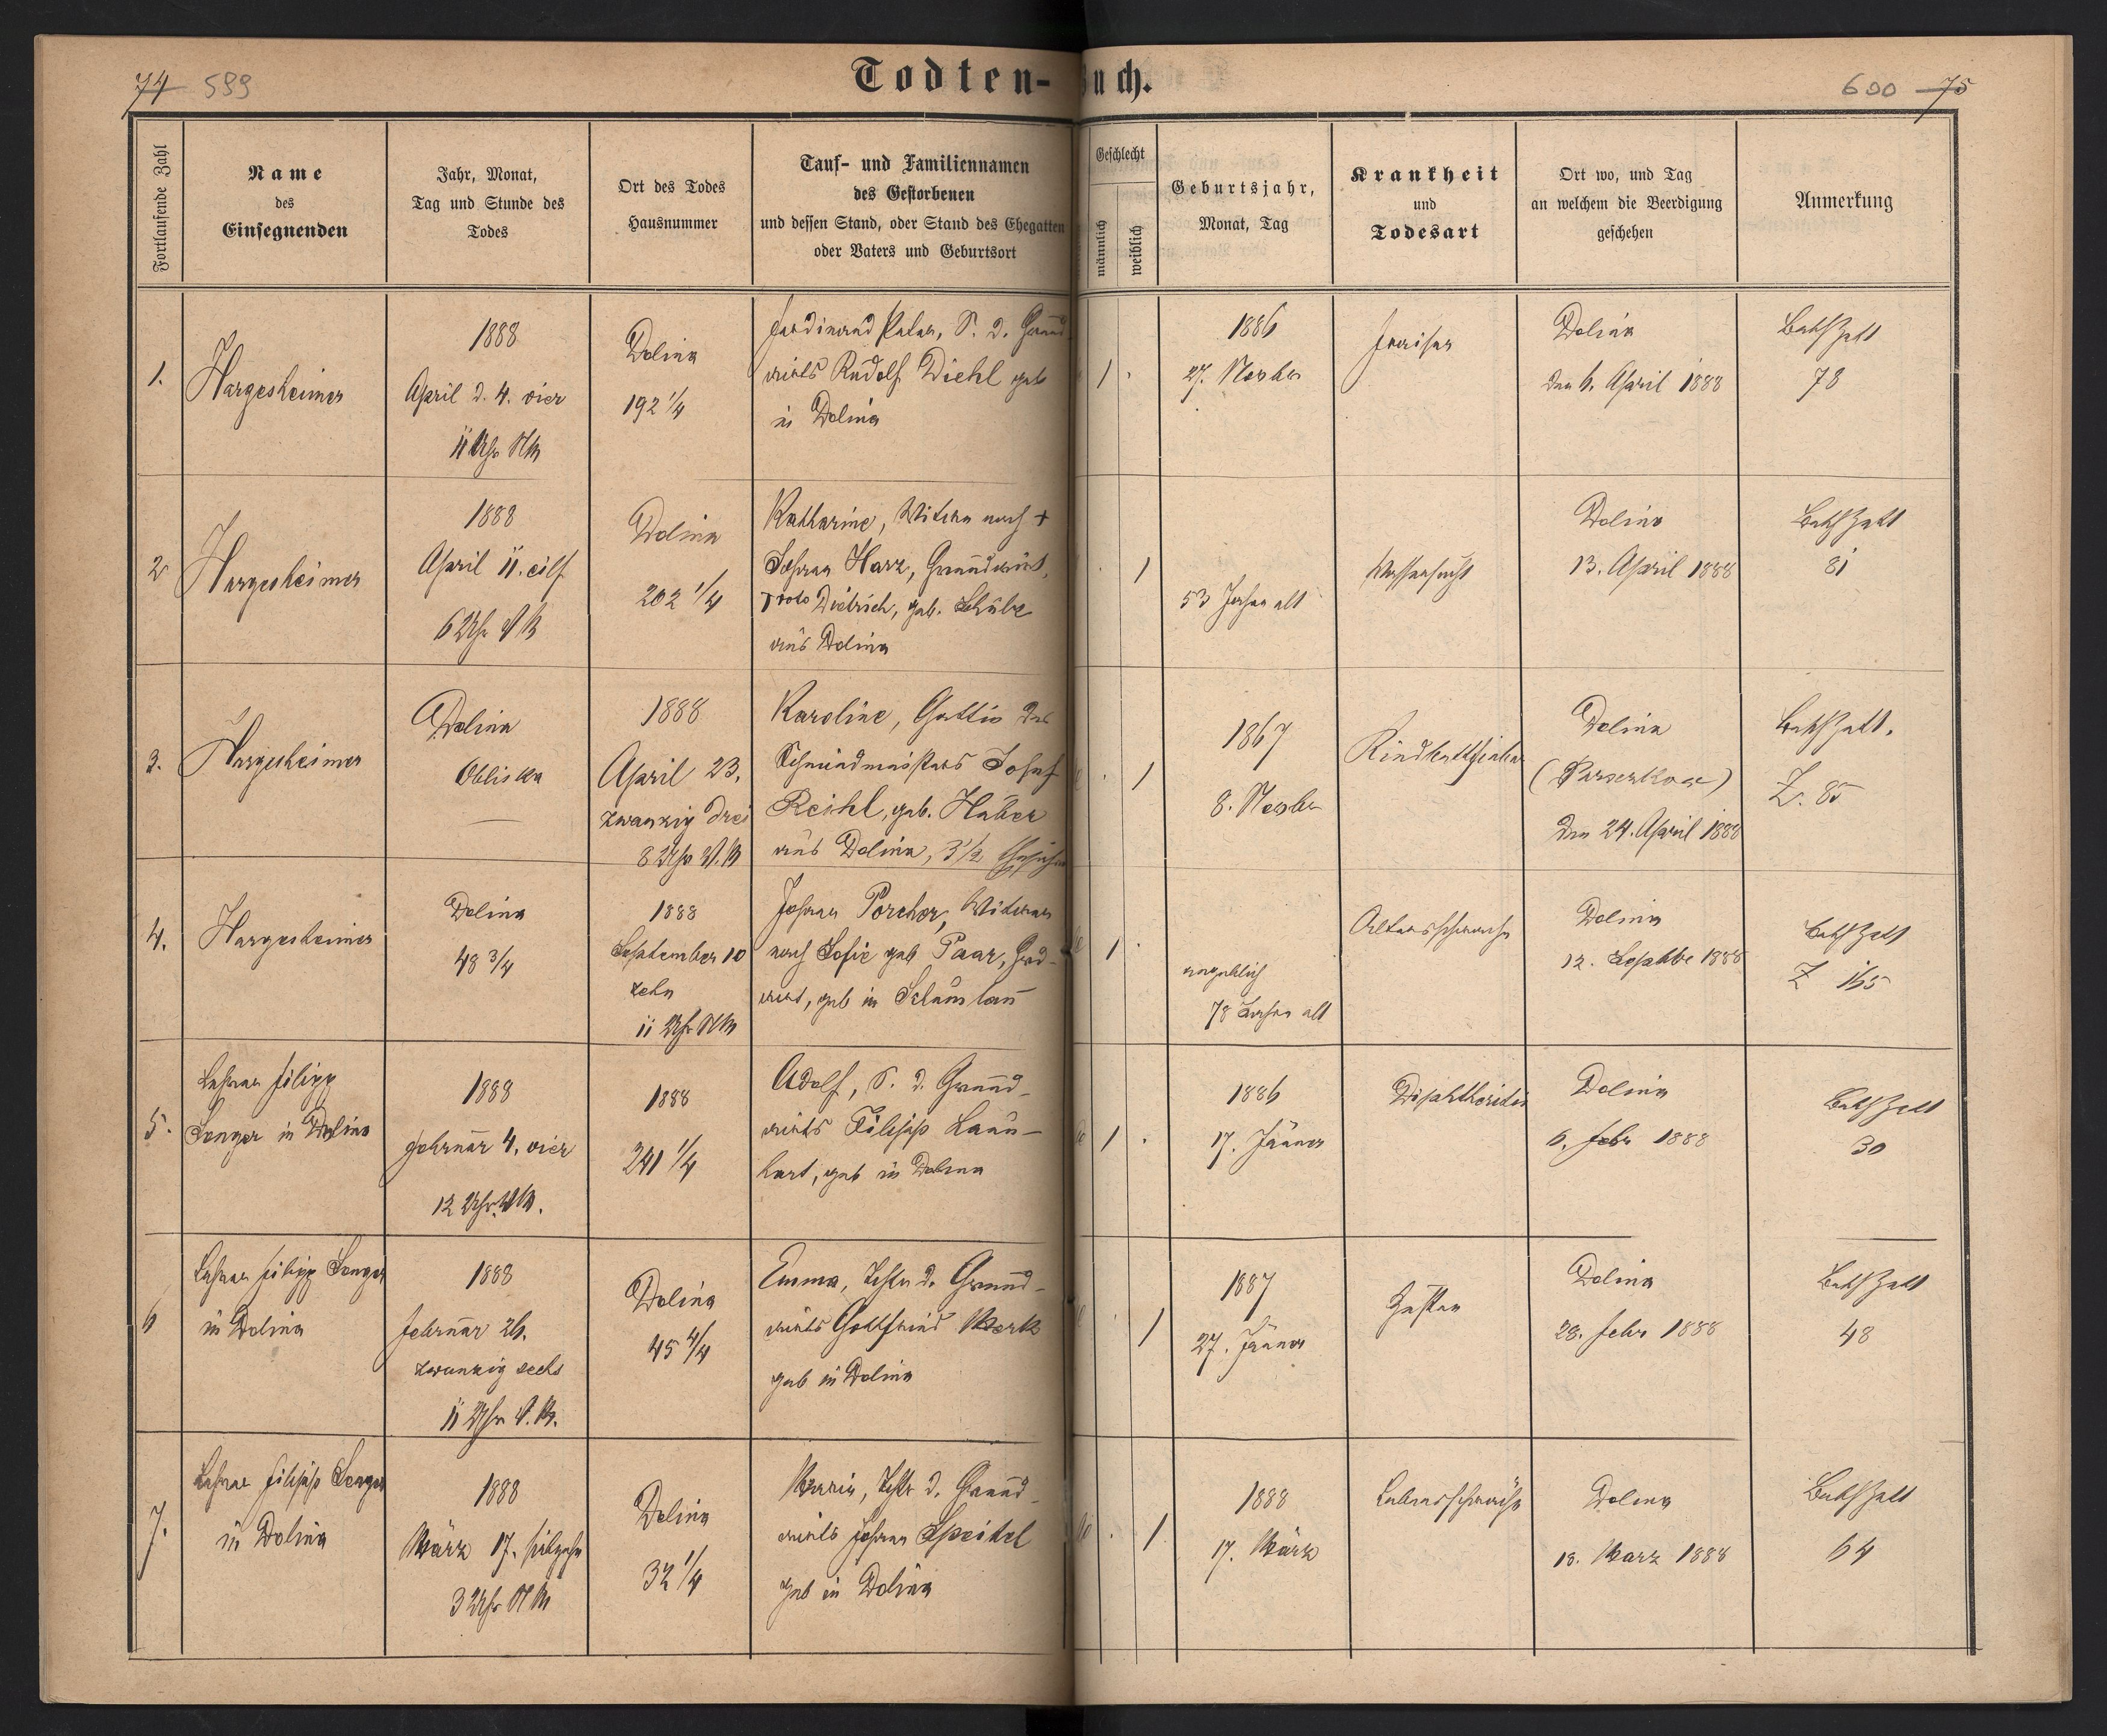 74 599
Todten-Buch.
600 75
Fortlaufende Zahl
Name
des
Einsegnenden
Jahr, Monat,
Tag und Stunde des
Todes
Ort des Todes
Hausnummer
Tauf- und Familiennamen
des Gestorbenen
und dessen Stand, oder Stand des Ehegatten
oder Vaters und Geburtsort
Geschlecht
männlich
weiblich
Geburtsjahr,
Monat, Tag
Krankheit
und
Todesart
Ort wo, und Tag
an welchem die Beerdigung
geschehen
Anmerkung
1.
Hargesheimer
1888
April d. 4. vier
11 Uhr NM
Dolina
192 1/4
Ferdinand Peter, S. d. Grund
wirts Rudolf Diehl geb
in Dolina
1
1886
27. Novber
Fraisen
Dolina
den 6. April 1888
BethZett
78
2
Hargesheimer
1888
April 11. eilf
6 Uhr VM
Dolina
202 1/4
Katharine, Witwe nach +
Johann Harz, Grundwirt,
Dietrich, geb. Schübe
aus Dolina
1
53 Jahre alt
Wassersucht
Dolina
13. April 1888
BethZett
81
3.
Hargesheimer
Dolina
Obliska
1888
April 23.
zwanzig drei
8 Uhr V.M
Karoline, Gattin des
Schmiedmeisters Josef
Reihl, geb. Huber
aus Dolina, 3 1/2
1
1867
8. Novbr
Kindbettfieber
Dolina
den 24. April 1888
BethZett.
Z. 85
4.
Hargesheimer
Dolina
48 3/4
1888
September 10
zehn
11 Uhr NM
Johann Porcher, Witwer
nach Sofie geb Paar, Grd-
wirt, geb in
1
angeblich
78 Jahre alt
Altersschwäche
Dolina
12. Septbe 1888
BethZett
Z 165
5.
Lehrer Filipp
Senger in Dolina
1888
Februar 4. vier
12 Uhr VM.
1888
241 1/4
Adolf, S. d. Grund-
wirts Filipp Laun-
hart, geb in Dolina
1
1886
17. Jänner
Diphtheritis
Dolina
6. Febr 1888
BethZett
30
6
Lehrer Filipp Senger
in Dolina
1888
Februar 26.
zwanzig sechs
11 Uhr V.M.
Dolina
45 4/4
Emma, Tochter d. Grund-
wirts Gottfried Merk
geb in Dolina
1
1887
27. Jänner
Husten
Dolina
28. Febr 1888
BethZett
48
7.
Lehrer Filipp Senger
in Dolina
1888
März 17. siebzehn
3 Uhr NM
Dolina
32 1/4
Maria, Tochtr d. Grund-
wirts Johann Speitel
geb in Dolina
1
1888
17. März
Lebensschwäche
Dolina
18. März 1888
BethZett
64